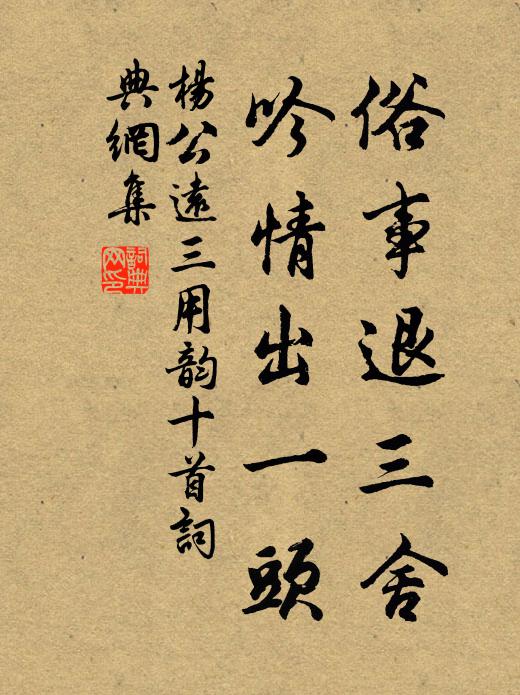 俗事退三舍
吟情出一頭
楊公遠三用韵十首詞
典網集
詞典
网印